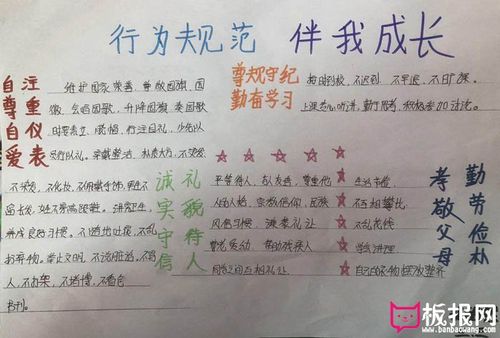 行为规范 伴我成长
自尊自爱
注重仪表
维护国家荣誉，尊敬国旗、国
徽，会唱国歌，升降国旗、奏国歌
时要肃立、脱帽、行注目礼，少先队
员行队礼。穿戴整洁、朴素大方，不烫发
不染发，不化妆，不佩戴首饰，男生不
留长发，女生不穿高跟鞋。讲究卫生，
养成良好习惯。不随地吐痰，不乱
扔弃物。举止文明，不说脏话，不骂
人，不打架，不赌博，
书刊。
尊规守纪
勤奋学习
按时到校，不迟到，不早退，不旷课。
上课专心听讲，勤于思考，积极参加讨论。
诚实守信
礼貌待人
平等待人，
人的人格、宗教信仰、民族
风俗习惯。谦恭礼让
尊老爱幼，帮助残疾人
同学之间互相礼让
生活节俭
不互相攀比
不乱花钱
学会料理
自己的衣物摆放整齐
勤劳俭朴
孝敬父母
板报网
www.banbaowang.com